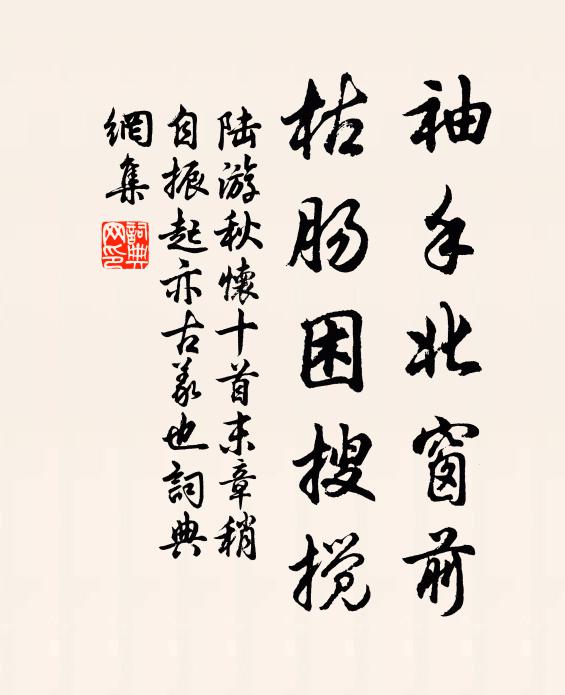 袖手北窗前
枯肠困搜搅
陆游秋懷十首末章稍
自振起亦古義也詞典
網集
詞典
网印